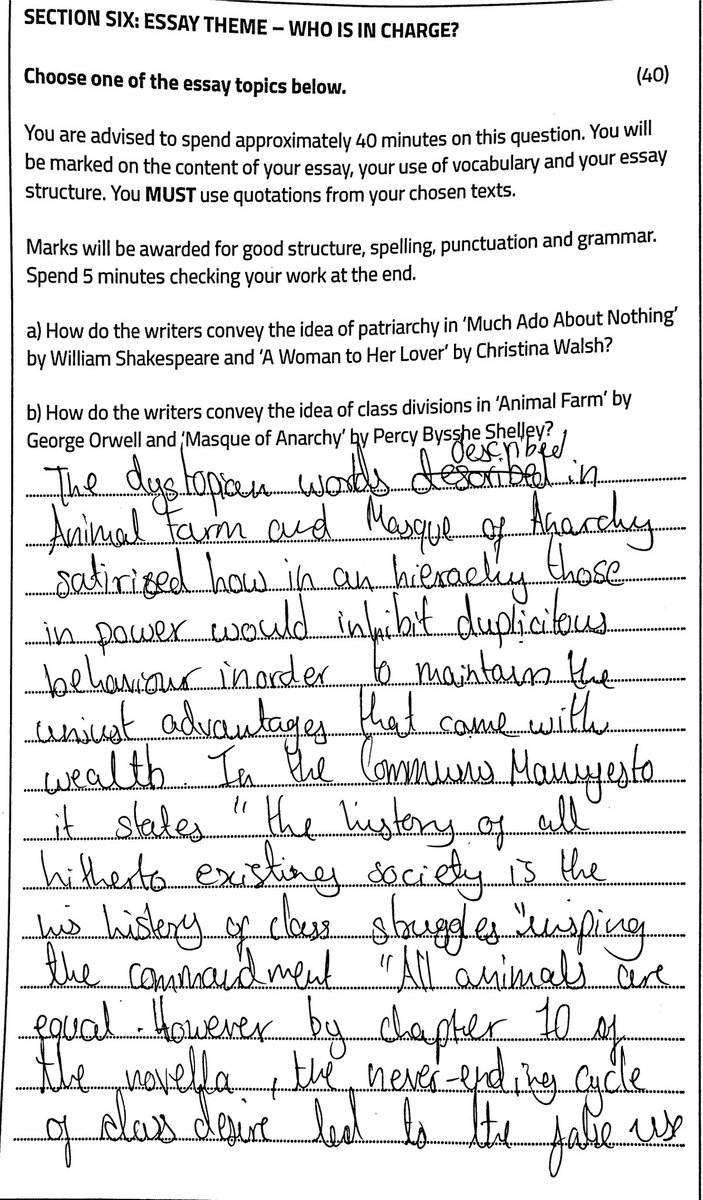 SECTION SIX: ESSAY THEME – WHO IS IN CHARGE?
Choose one of the essay topics below. (40)
You are advised to spend approximately 40 minutes on this question. You will
be marked on the content of your essay, your use of vocabulary and your essay
structure. You MUST use quotations from your chosen texts.
Marks will be awarded for good structure, spelling, punctuation and grammar.
Spend 5 minutes checking your work at the end.
a) How do the writers convey the idea of patriarchy in ‘Much Ado About Nothing’
by William Shakespeare and ‘A Woman to Her Lover’ by Christina Walsh?
b) How do the writers convey the idea of class divisions in ‘Animal Farm’ by
George Orwell and ‘Masque of Anarchy’ by Percy Bysshe Shelley?
described
The dystopian described in
Animal Farm and Masque of Anarchy
satirized how in an those
in power would duplicitous
behaviour inorder to maintain the
unjust advantages that came with
wealth. In the
it states " the history of all
hitherto existing society is the
his history of class struggles "
the "All animals are
equal. However by chapter 10 of
the novella, the never-ending cycle
of class desire led to the use